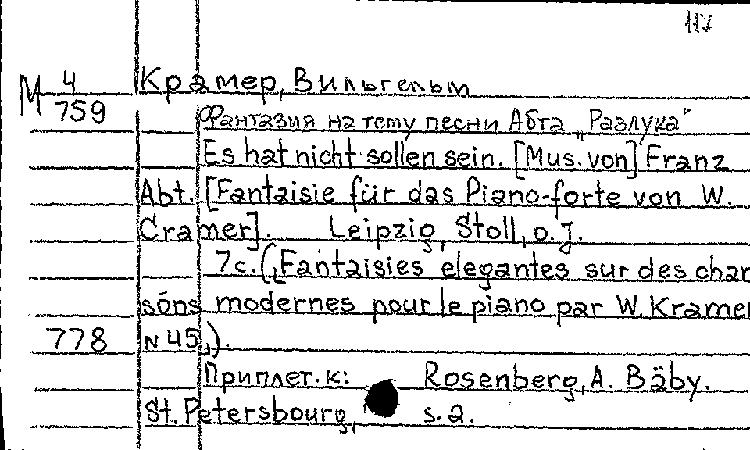 117
М 4 Крамер, Вильгельм
759 Фантазия на тему песни Абта „Разлука"
Es hat nicht sollen sein. [Mus. von] Franz
Abt. [Fantaisie für das Piano-forte von W.
Cramer]. Leipzig, Stoll, o. J.
7c. („Fantaisies elegantes sur des chan
sóns modernes pour le piano par W. Kramer
778 N 45„).
Приплет. к: Rosenberg, A. Bäby.
St. Petersbourg, s. a.